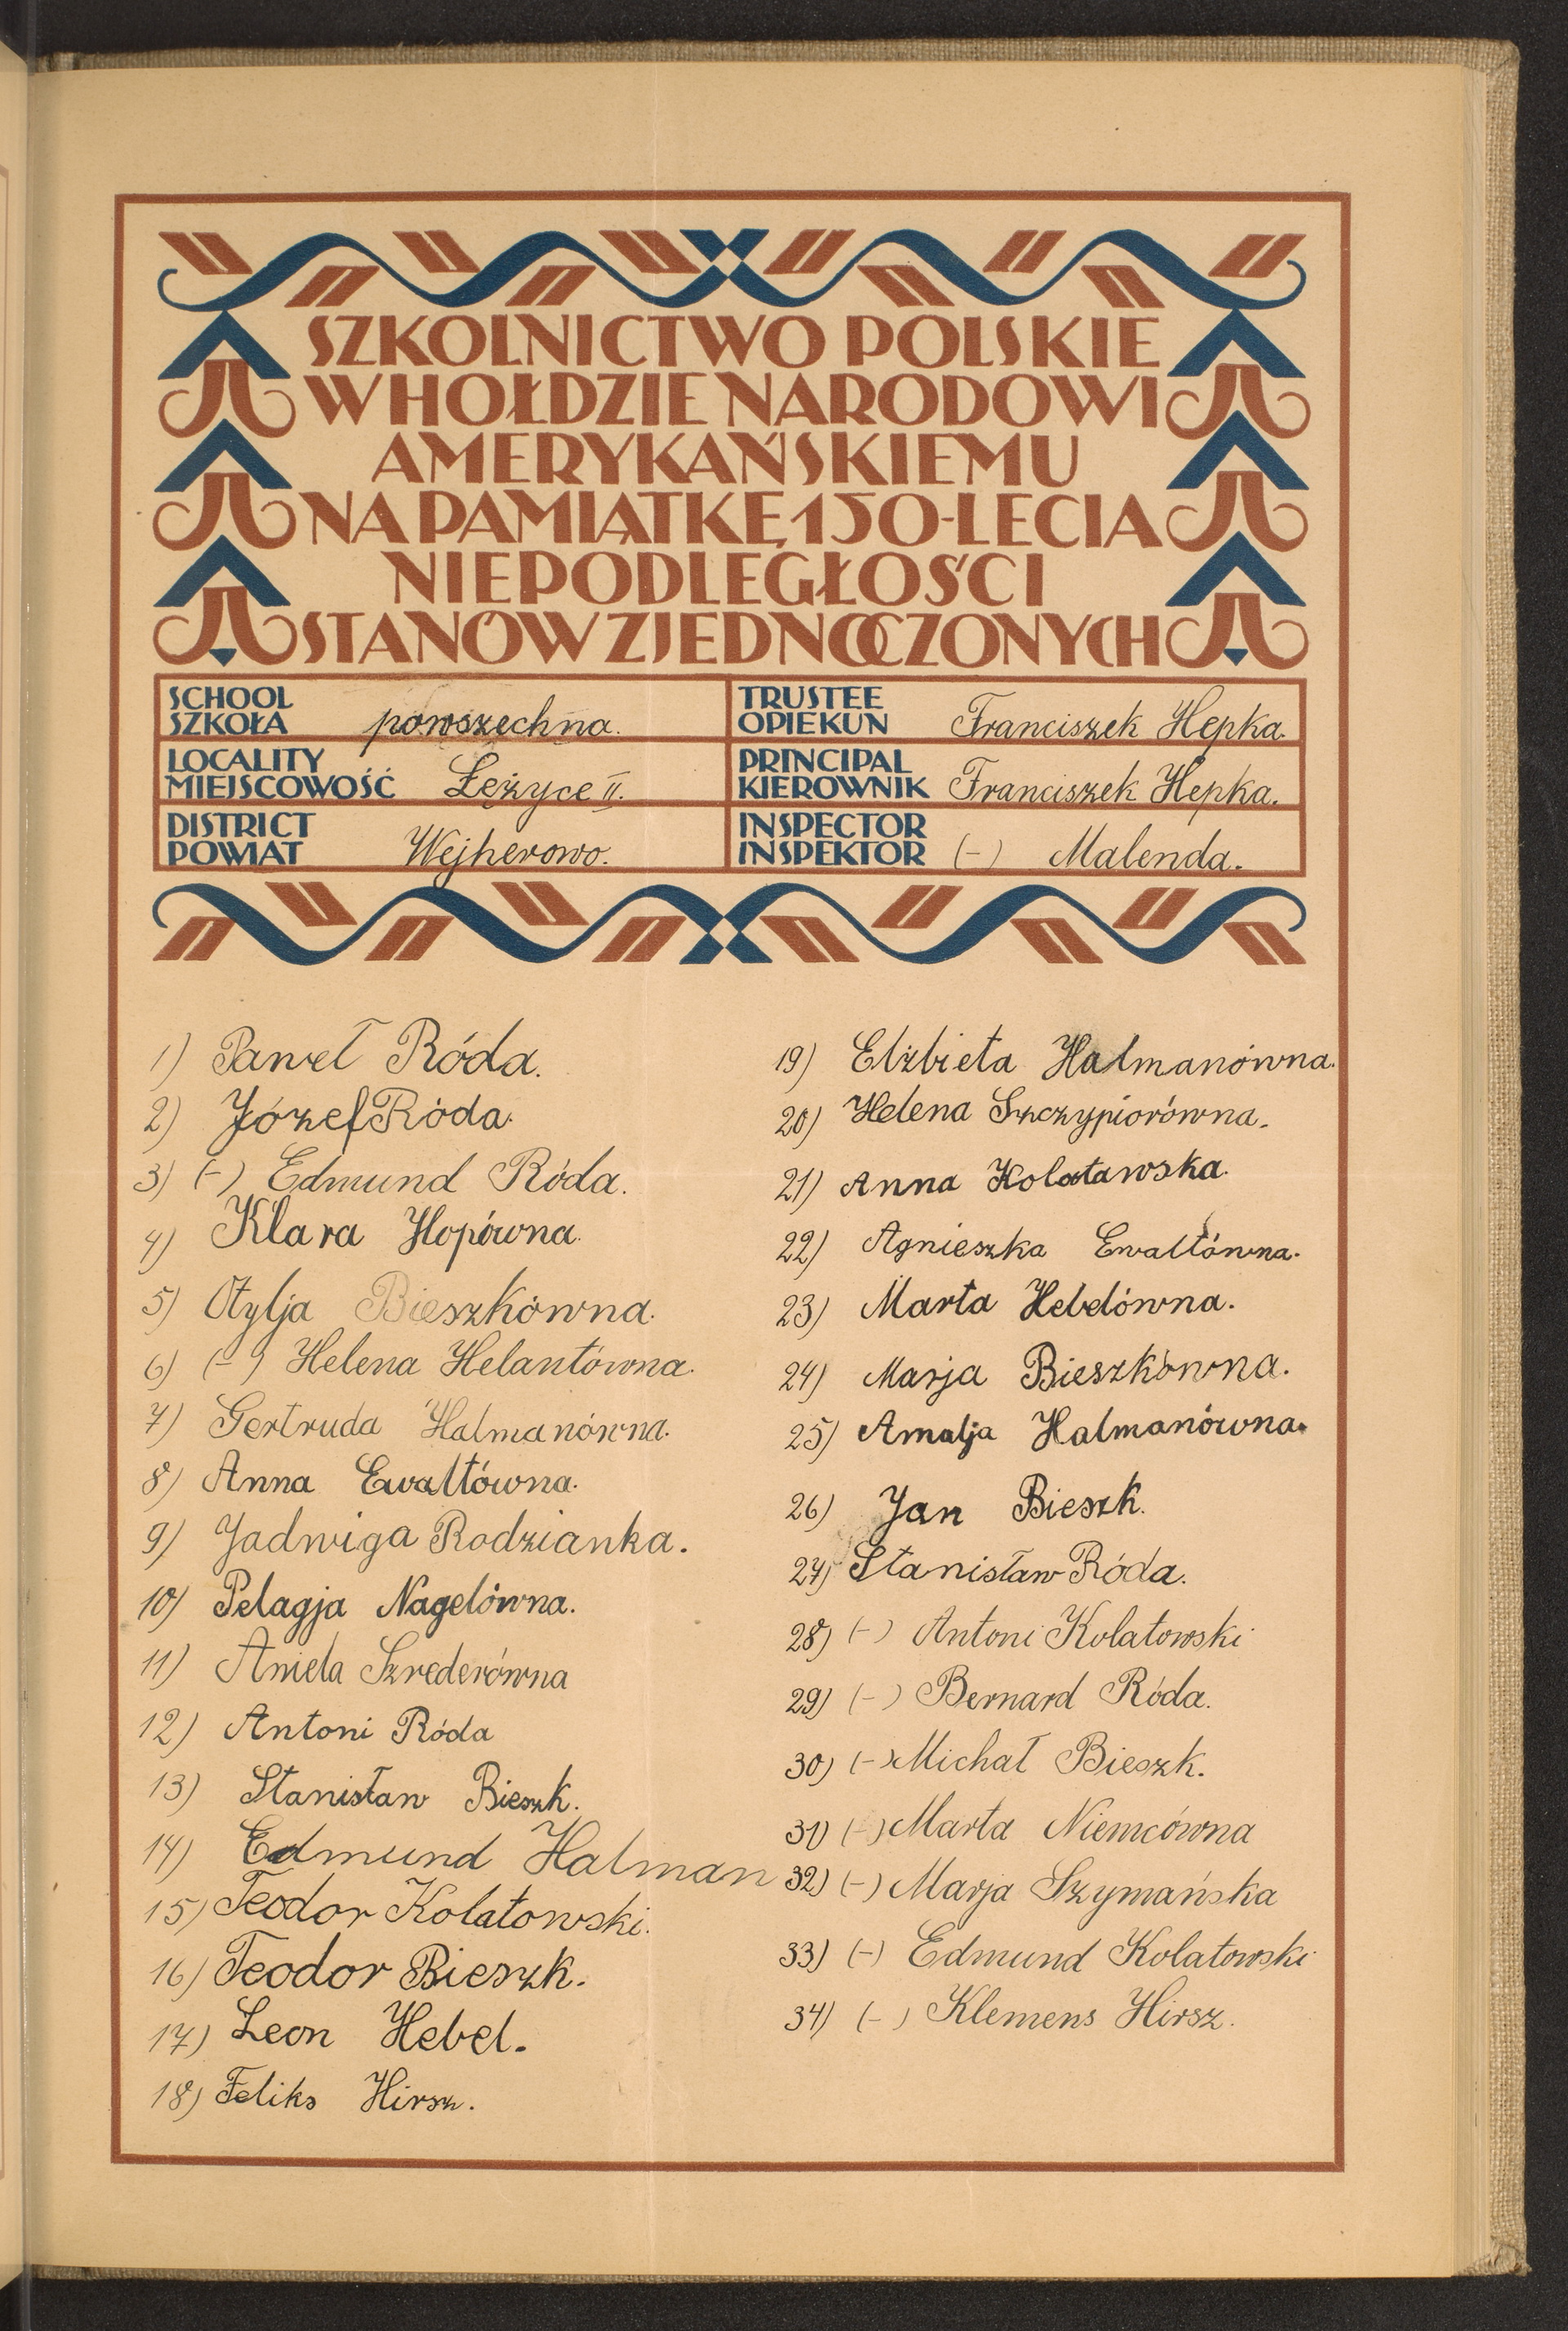 SZKOLNICTWO POLSKIE
W HOŁDZIE NARODOWI
AMERYKAŃSKIEMU
NA PAMIĄTKĘ 150-LECIA
NIEPODLEGŁOŚCI
STANÓW ZJEDNOCZONYCH
SCHOOL
SZKOŁA powszechna.
LOCALITY
MIEJSCOWOŚĆ Łężyce II.
DISTRICT
POWIAT Wejherowo.
TRUSTEE
OPIEKUN Franciszek Hepka.
PRINCIPAL
KIEROWNIK Franciszek Hepka.
INSPECTOR
INSPEKTOR (-) Malenda.
1) Paweł Róda.
2) Józef Róda.
3) (-) Edmund Róda.
4) Klara Hopówna.
5) Otylja Bieszkówna.
6) (-) Helena Helantówna.
7) Gertruda Halmanówna.
8) Anna Ewałtówna.
9) Jadwiga Rodzianka.
10) Pelagja Nagelówna.
11) Aniela Szrederówna
12) Antoni Róda
13) Stanisław Bieszk.
14) Edmund Halman
15) Teodor Kolatowski.
16) Teodor Bieszk.
17) Leon Hebel.
18) Feliks Hirsz.
19) Elżbieta Halmanówna.
20) Helena Szczypiorówna.
21) Anna Kolatawska.
22) Agnieszka Ewałtówna.
23) Marta Hebelówna.
24) Marja Bieszkówna.
25) Amalja Halmanówna.
26) Jan Bieszk.
27) Stanisław Róda.
28) (-) Antoni Kolatowski
29) (-) Bernard Róda.
30) (-) Michał Bieszk.
31) (-) Marta Niemcówna
32) (-) Marja Szymańska
33) (-) Edmund Kolatowski
34) (-) Klemens Hirsz.